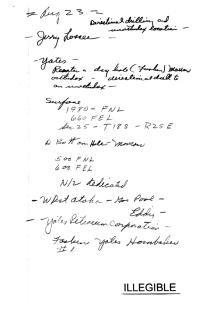 Aug 23 -
Directional drilling and
unorthodox location -
- Jerry Losee -
- Yates -
Reenter a dry hole (Fusselman) Morrow
orthodox - directional drill to
an unorthodox -
Surface
1980 - FNL
660 FEL
Sec 25 - T18S - R25E
Bottom Hole - Morrow
500 FNL
600 FEL
N/2 dedicated
- West Atoka - Gas Pool -
Eddy -
- Yates Petroleum Corporation -
Yates Hornbaker
#1
ILLEGIBLE